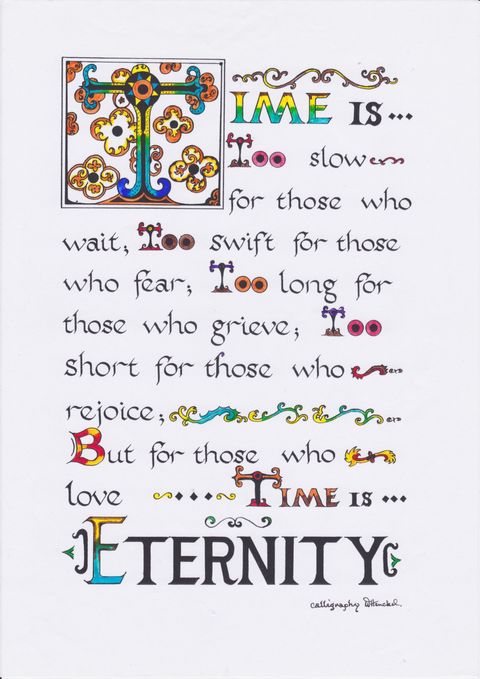 TIME IS...
Too slow
for those who
wait; Too swift for those
who fear; Too long for
those who grieve; Too
short for those who
rejoice;
But for those who
love TIME IS...
ETERNITY
calligraphy